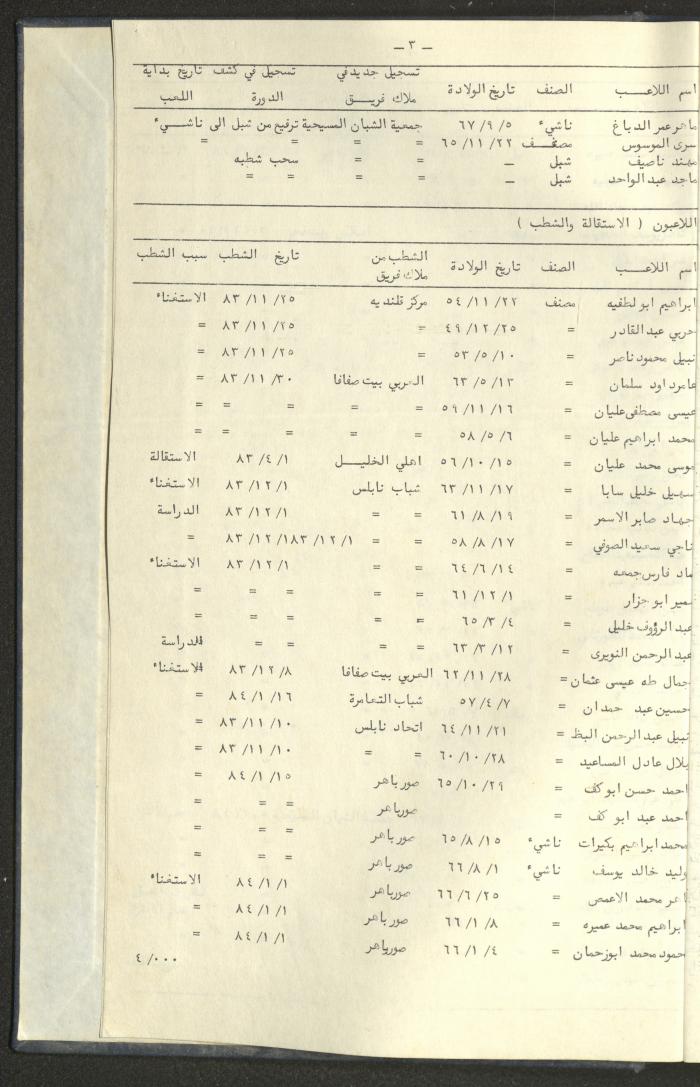 — ٣ —
اسم اللاعـــب الصنف تاريخ الولادة تسجيل جديد في ملاك فريـــق تسجيل في كشف الدورة تاريخ بداية اللعب
ماهر عمر الدباغ ناشيء ٥ /٩ /٦٧ جمعية الشبان المسيحية ترفيع من شبل الى ناشـــيء
سرى الموسوس مصنـــف ٢٢ /١١ /٦٥ = = = =
مهند ناصيف شبل — = = سحب شطبه
ماجد عبد الواحد شبل — = = = =
اللاعبون ( الاستقالة والشطب )
اسم اللاعـــب الصنف تاريخ الولادة الشطب من ملاك فريق تاريخ الشطب سبب الشطب
ابراهيم ابو لطفيه مصنف ٢٢ /١١ /٥٤ مركز قلنديه ٢٥ /١١ /٨٣ الاستغناء
حربي عبد القادر = ٢٥ /١٢ /٤٩ = ٢٥ /١١ /٨٣ =
نبيل محمود ناصر = ١٠ /٥ /٥٣ = ٢٥ /١١ /٨٣ =
عامر داود سلمان = ١٣ /٥ /٦٣ العربي بيت صفافا ٣٠ /١١ /٨٣ =
عيسى مصطفى عليان = ١٦ /١١ /٥٩ = = = = =
محمد ابراهيم عليان = ٦ /٥ /٥٨ = = = = =
موسى محمد عليان = ١٥ /١٠ /٥٦ اهلي الخليـــل ١ /٤ /٨٣ الاستقالة
سهيل خليل سابا = ١٧ /١١ /٦٣ شباب نابلس ١ /١٢ /٨٣ الاستغناء
جهاد صابر الاسمر = ١٩ /٨ /٦١ = = ١ /١٢ /٨٣ الدراسة
ناجي سعيد الصوفي = ١٧ /٨ /٥٨ = = ١ /١٢ /٨٣١ /١٢ /٨٣ =
ماد فارس جمعه = ١٤ /٦ /٦٤ = = ١ /١٢ /٨٣ الاستغناء
سمير ابو جزار = ١ /١٢ /٦١ = = = = =
عبد الرؤوف خليل = ٤ /٣ /٦٥ = = = = =
عبد الرحمن النويرى = ١٢ /٣ /٦٣ = = = = الدراسة
جمال طه عيسى عثمان = ٢٨ /١١ /٦٢ العربي بيت صفافا ٨ /١٢ /٨٣ الاستغناء
حسين عبد حمدان = ٧ /٤ /٥٧ شباب التعامرة ١٦ /١ /٨٤ =
نبيل عبد الرحمن البظ = ٢١ /١١ /٦٤ اتحاد نابلس ١٠ /١١ /٨٣ =
بلال عادل المساعيد = ٢٨ /١٠ /٦٠ = = ١٠ /١١ /٨٣ =
احمد حسن ابو كف = ٢٩ /١٠ /٦٥ صور باهر ١٥ /١ /٨٤ =
احمد عبد ابو كف = صورباهر = = =
محمد ابراهيم بكيرات ناشيء ١٥ /٨ /٦٥ صور باهر = = =
وليد خالد يوسف ناشيء ١ /٨ /٦٦ صور باهر = = =
ماهر محمد الاعمص = ٢٥ /٦ /٦٦ صورباهر ١ /١ /٨٤ الاستغناء
ابراهيم محمد عميره = ٨ /١ /٦٦ صور باهر ١ /١ /٨٤ =
حمود محمد ابوزحمان = ٤ /١ /٦٦ صورباهر ١ /١ /٨٤ =
٤ /٠٠٠